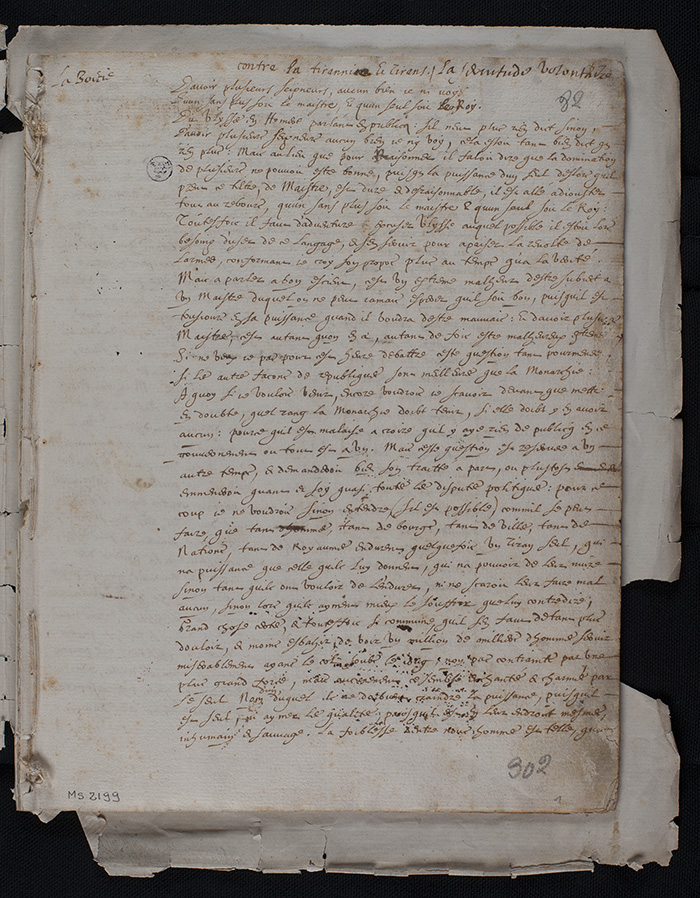 la Boitie
contre la tirannie & tirans / La servitude volontaire
D'avoir plusieurs seigneurs, aucun bien ie ni voy
Qu'un sans plus soit le maistre, & qu'un seul soit le Roy.
88
Dit Ulysse en Homere parlant en public: s'il n'eut plus rien dict sinon
D'avoir plusieurs seigneurs aucun bien ie n'y voy, cela estoit tant bien dict que
rien plus: Mais au lieu que pour raisonner il faloit dire que la domination
de plusieurs ne pouvoit estre bonne, puisque la puissance d'un seul deslors qu'il
prent ce tiltre de Maistre, est dure & desraisonnable, il est allé adiouster
tout au rebours, qu'un sans plus soit le maistre & qu'un seul soit le Roy:
Toutesfois il faut d'adventure excuser Ulysse auquel possible il estoit lors
besoing d'user de ce langage, & s'en servir pour apaiser la revolte de
l'armée, conformant ce croy son propos plus au temps qu'a la verité.
Mais a parler a bon escient, c'est un extreme malheur d'estre subiect a
un Maistre duquel on ne peut iamais esperer qu'il soit bon, puisqu'il est
tousiours en sa puissance quand il voudra d'estre mauvais: & d'avoir plusieurs
Maistres c'est autant qu'on en a, autant de fois estre malheureux
Si ne veux ie pas pour cest heure debattre ceste question tant pourmenée
si les autres facons de republique sont meilleures que la Monarchie:
A quoy si ie voulois venir, encore voudrois ie scavoir devant que mettre
en doubte, quel rang la Monarchie doibt tenir, si elle doibt y en avoir
aucun: pource qu'il est malaisé a croire qu'il y aye rien de publicq en ce
gouvernement ou tout est a un. Mais ceste question est reservee a un
autre temps, & demanderoit bien son traitté a part, ou plustost
emmeneroit quant & soy quasi toute les dispute politique: pour ce
coup ie ne voudrois sinon entendre (s'il est possible) comme il se peut
faire, que tant d'hommes, tant de bourgs, tant de villes, tant de
Nations, tant de Royaumes endurent quelquefois un tiran seul, qui
n'a puissance que celle qu'ils luy donnent, qui n'a pouvoir de leur nuire
sinon tant qu'ils ont vouloir de l'endurer, ni ne scaroit leur faire mal
aucun, sinon lors qu'ils ayment mieux le souffrir que luy contredire,
Grand chose certes, & toutesfois si commune, qu'il s'en faut d'autant plus
douloir, & moins esbahir, de voir un million de millier d'hommes servir
miserablement ayant le col soubs le ioug, non pas contraint par une
plus grand force, mais aucunement ce semble enchantés & charmés par
le seul Nom duquel ils ne debvroient craindre la puissance, puisqu'il
est seul, ni aymer les qualités, puisqu'il est leur endroict mesme
inhumain & sauvage. La foiblesse d'entre nous hommes est telle,
302
MS 2199
1